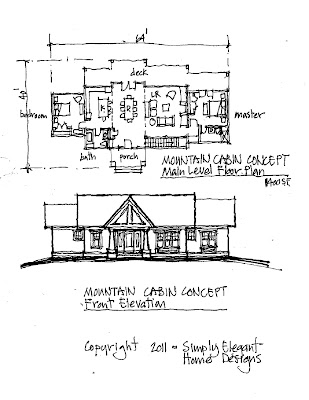 64'
deck
40'
LR
K
bedroom
master
bath
porch
MOUNTAIN CABIN CONCEPT
Main Level Floor Plan
MOUNTAIN CABIN CONCEPT
Front Elevation
Copyright 2011 Simply Elegant
Home Designs